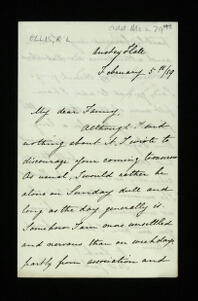 ELLIS, R. L.
Add. Ms a 79
Anstey Hall
February 5th/49
My dear Fanny,
Although I said
nothing about it I wrote to
discourage your coming tomorrow
As usual, I would rather be
alone on Sunday dull and
long as the day generally is.
Somehow I am more unsettled
and nervous than on weekdays
partly from association and